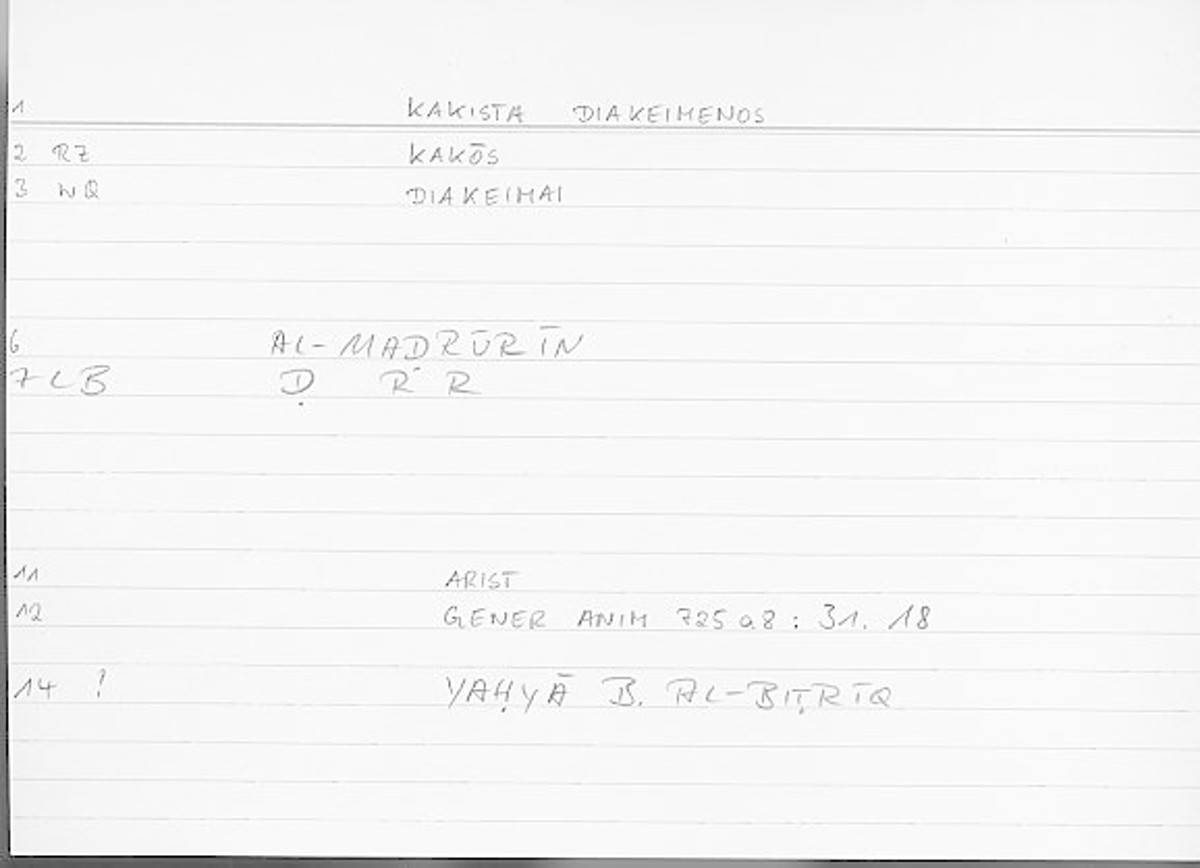 1 KAKISTA DIAKEIMENOS
2 RZ KAKŌS
3 WQ DIAKEIMAI
6 AL-MADRŪRĪN
7 LB Ḍ R R
11 ARIST
12 GENER ANIM 725a8: 31.18
14 ! YAḤYĀ B. AL-BIṬRĪQ